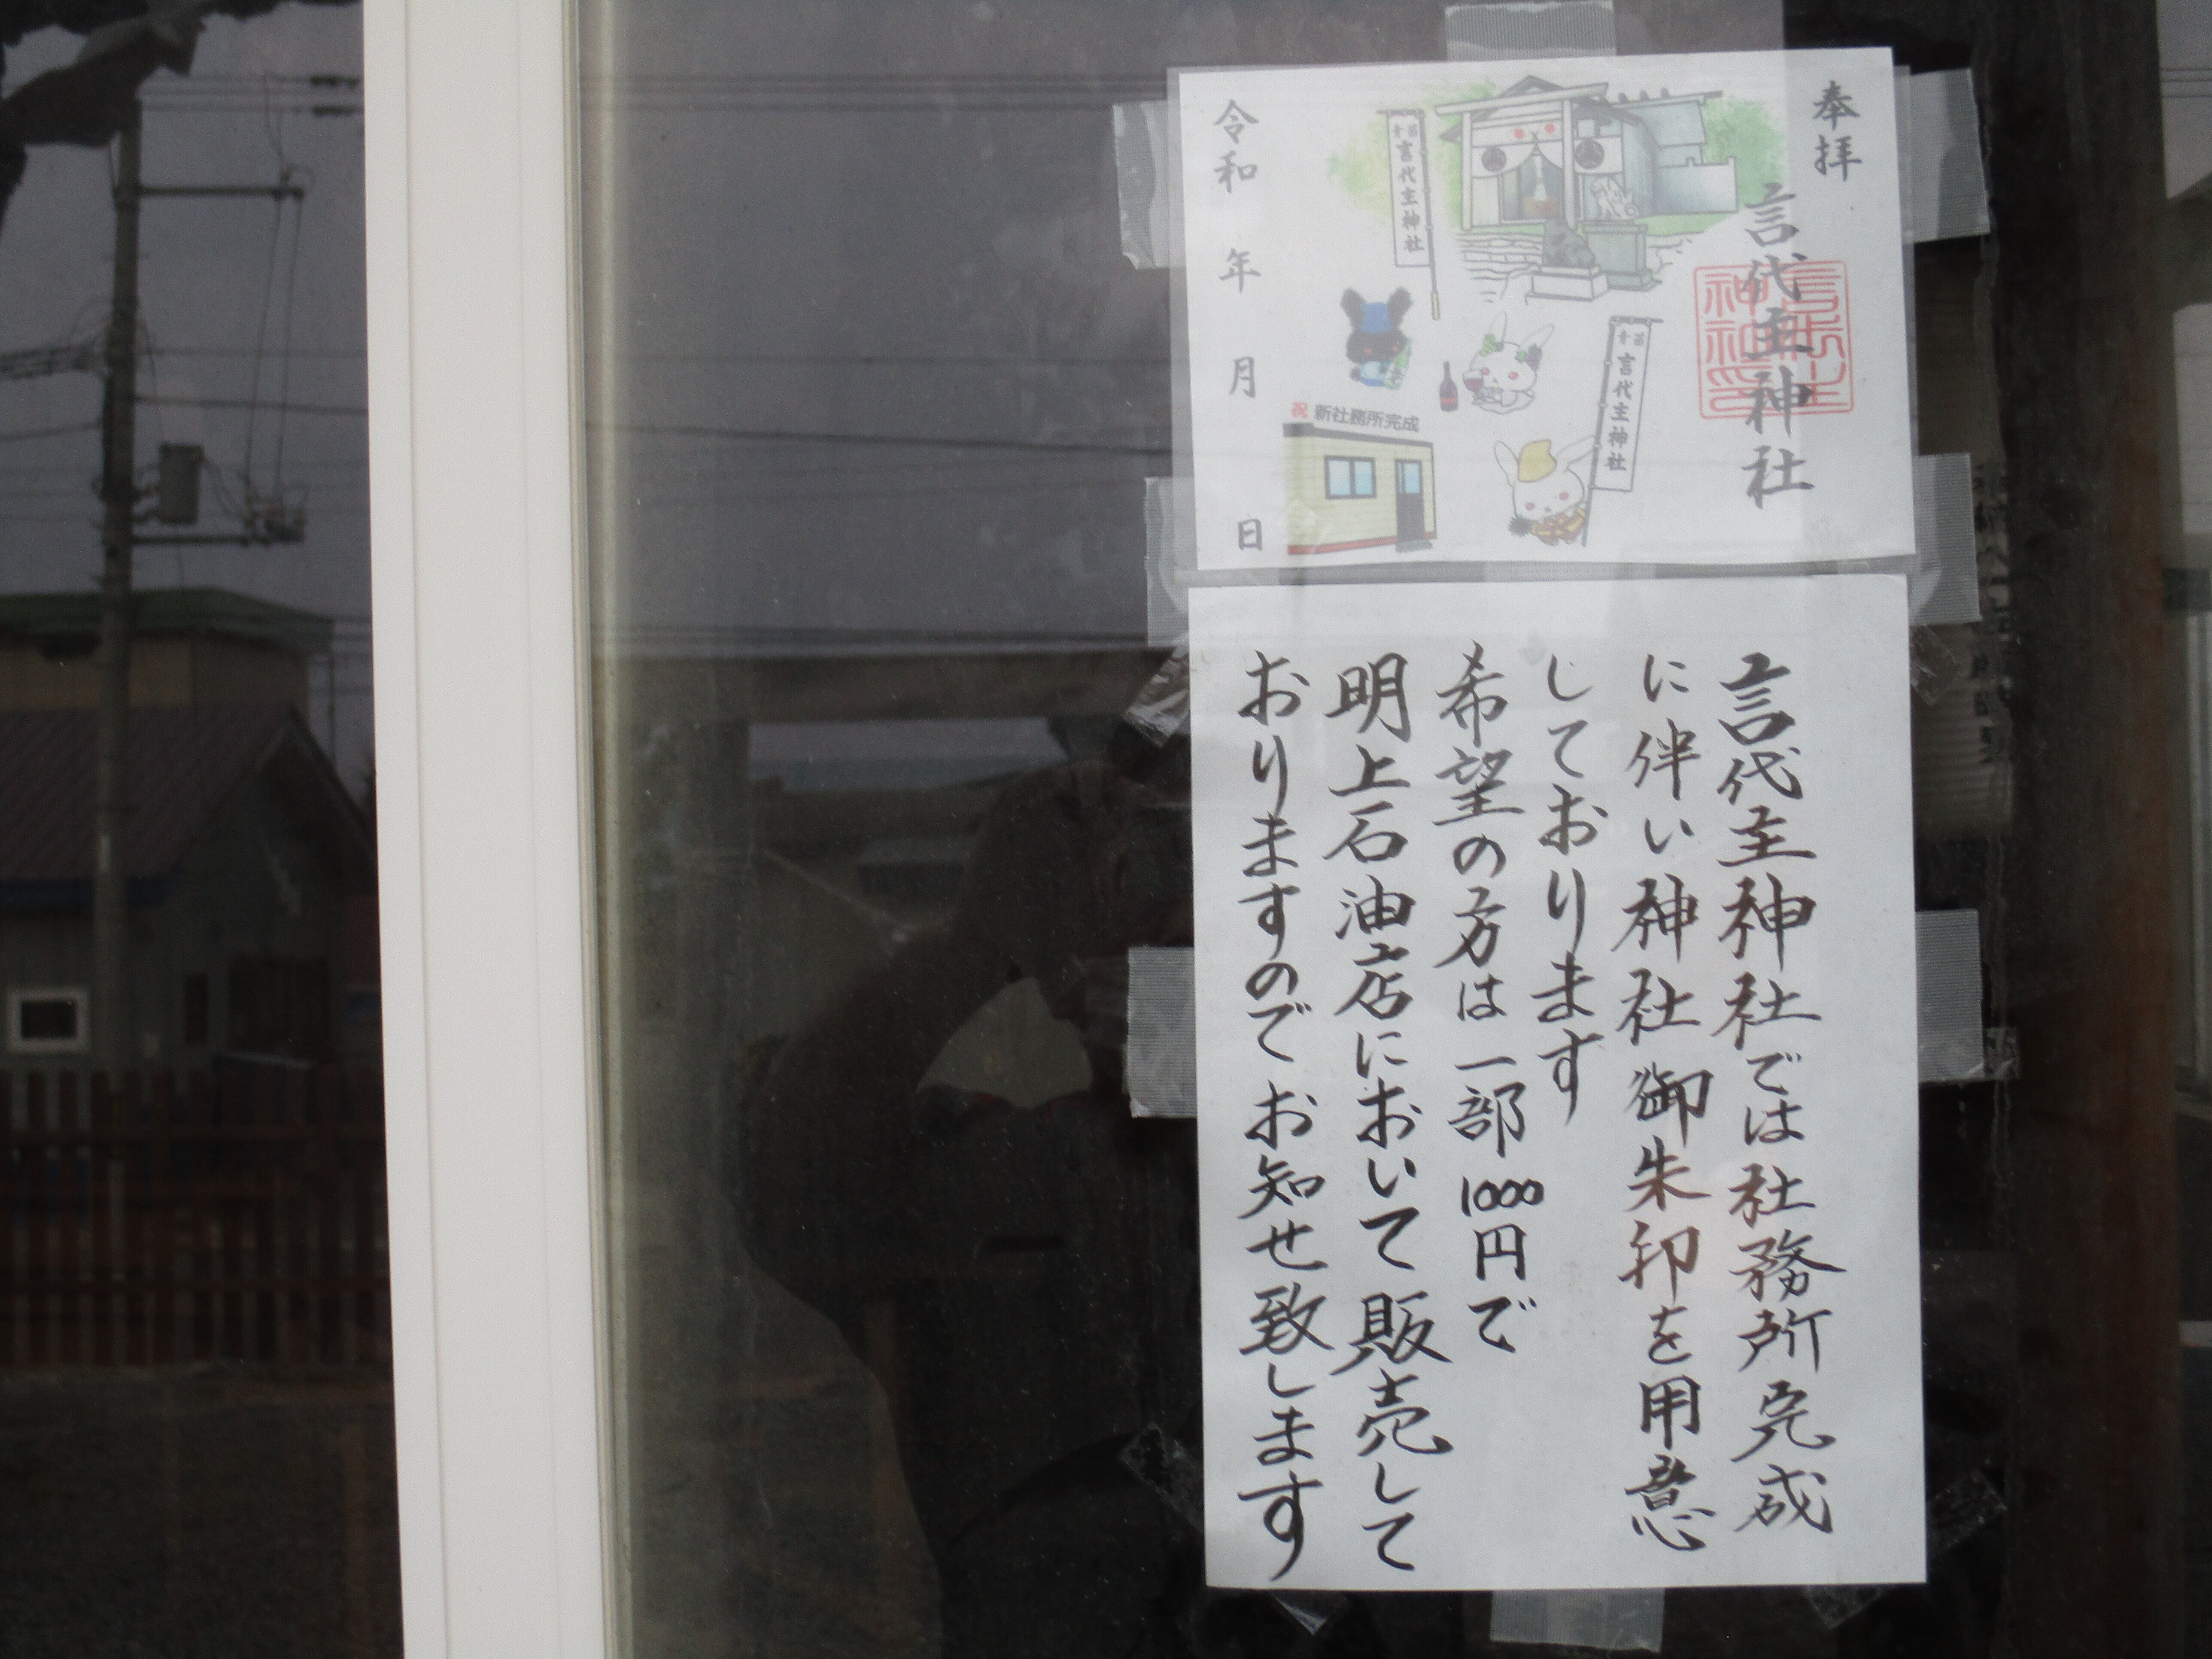 奉拝
言代主神社
言代主神社
祝 新社務所完成
言代主神社
令和 年 月 日
言代主神社では社務所完成
に伴い神社御朱印を用意
しております
希望の方は一部1000円で
明上石油店において販売して
おりますのでお知せ致します